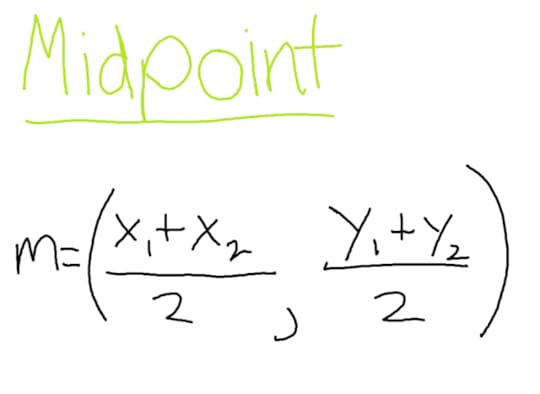 Midpoint
m=(x₁+x₂/2, y₁+y₂/2)